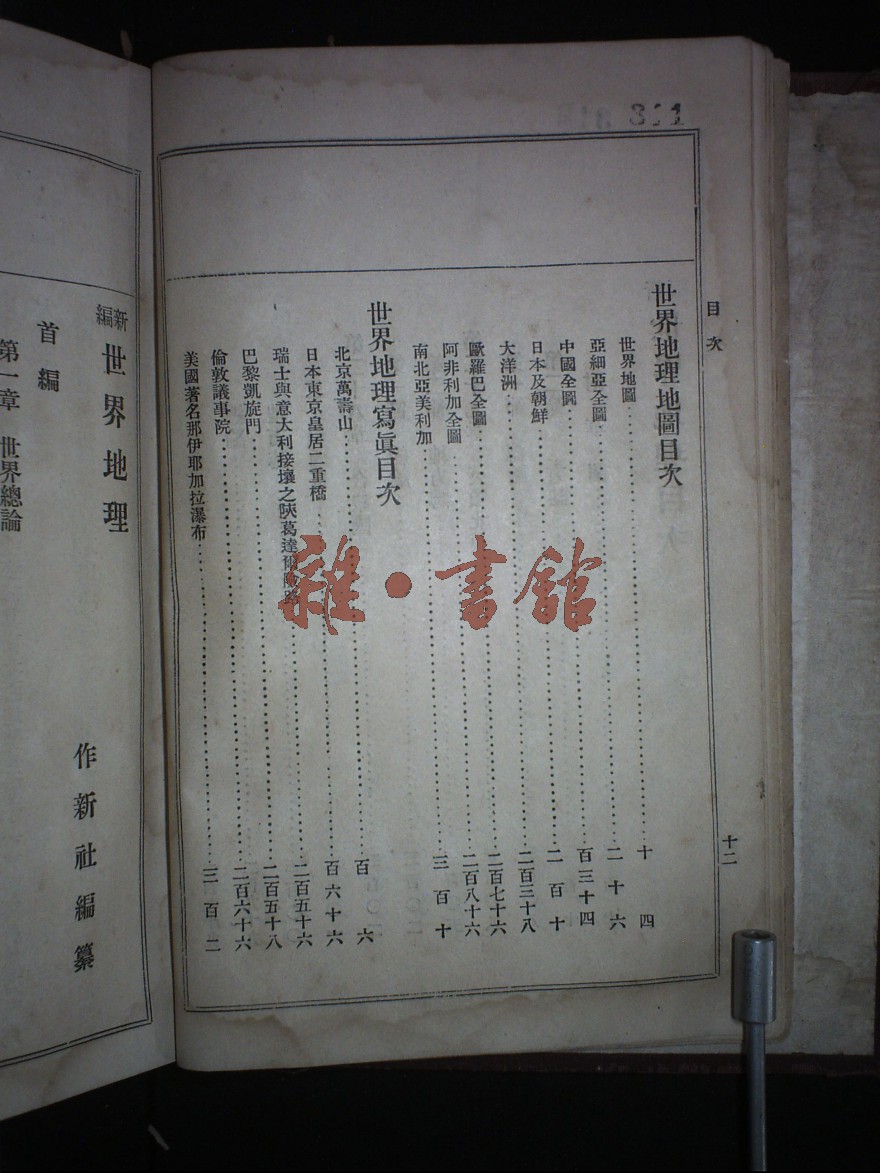 目次
十二
世界地理地圖目次
世界地圖……十四
亞細亞全圖……二十六
中國全圖……百三十四
日本及朝鮮……二百十
大洋洲……二百三十八
歐羅巴全圖……二百七十六
阿非利加全圖……二百八十六
南北亞美利加……三百十
世界地理寫眞目次
北京萬壽山……百六
日本東京皇居二重橋……百六十六
瑞士與意大利接壤之陝葛達爾路……二百五十六
巴黎凱旋門……二百五十八
倫敦議事院……二百六十六
美國著名那伊耶加拉瀑布……三百二
新編世界地理
作新社編纂
首編
第一章 世界總論
雜·書館